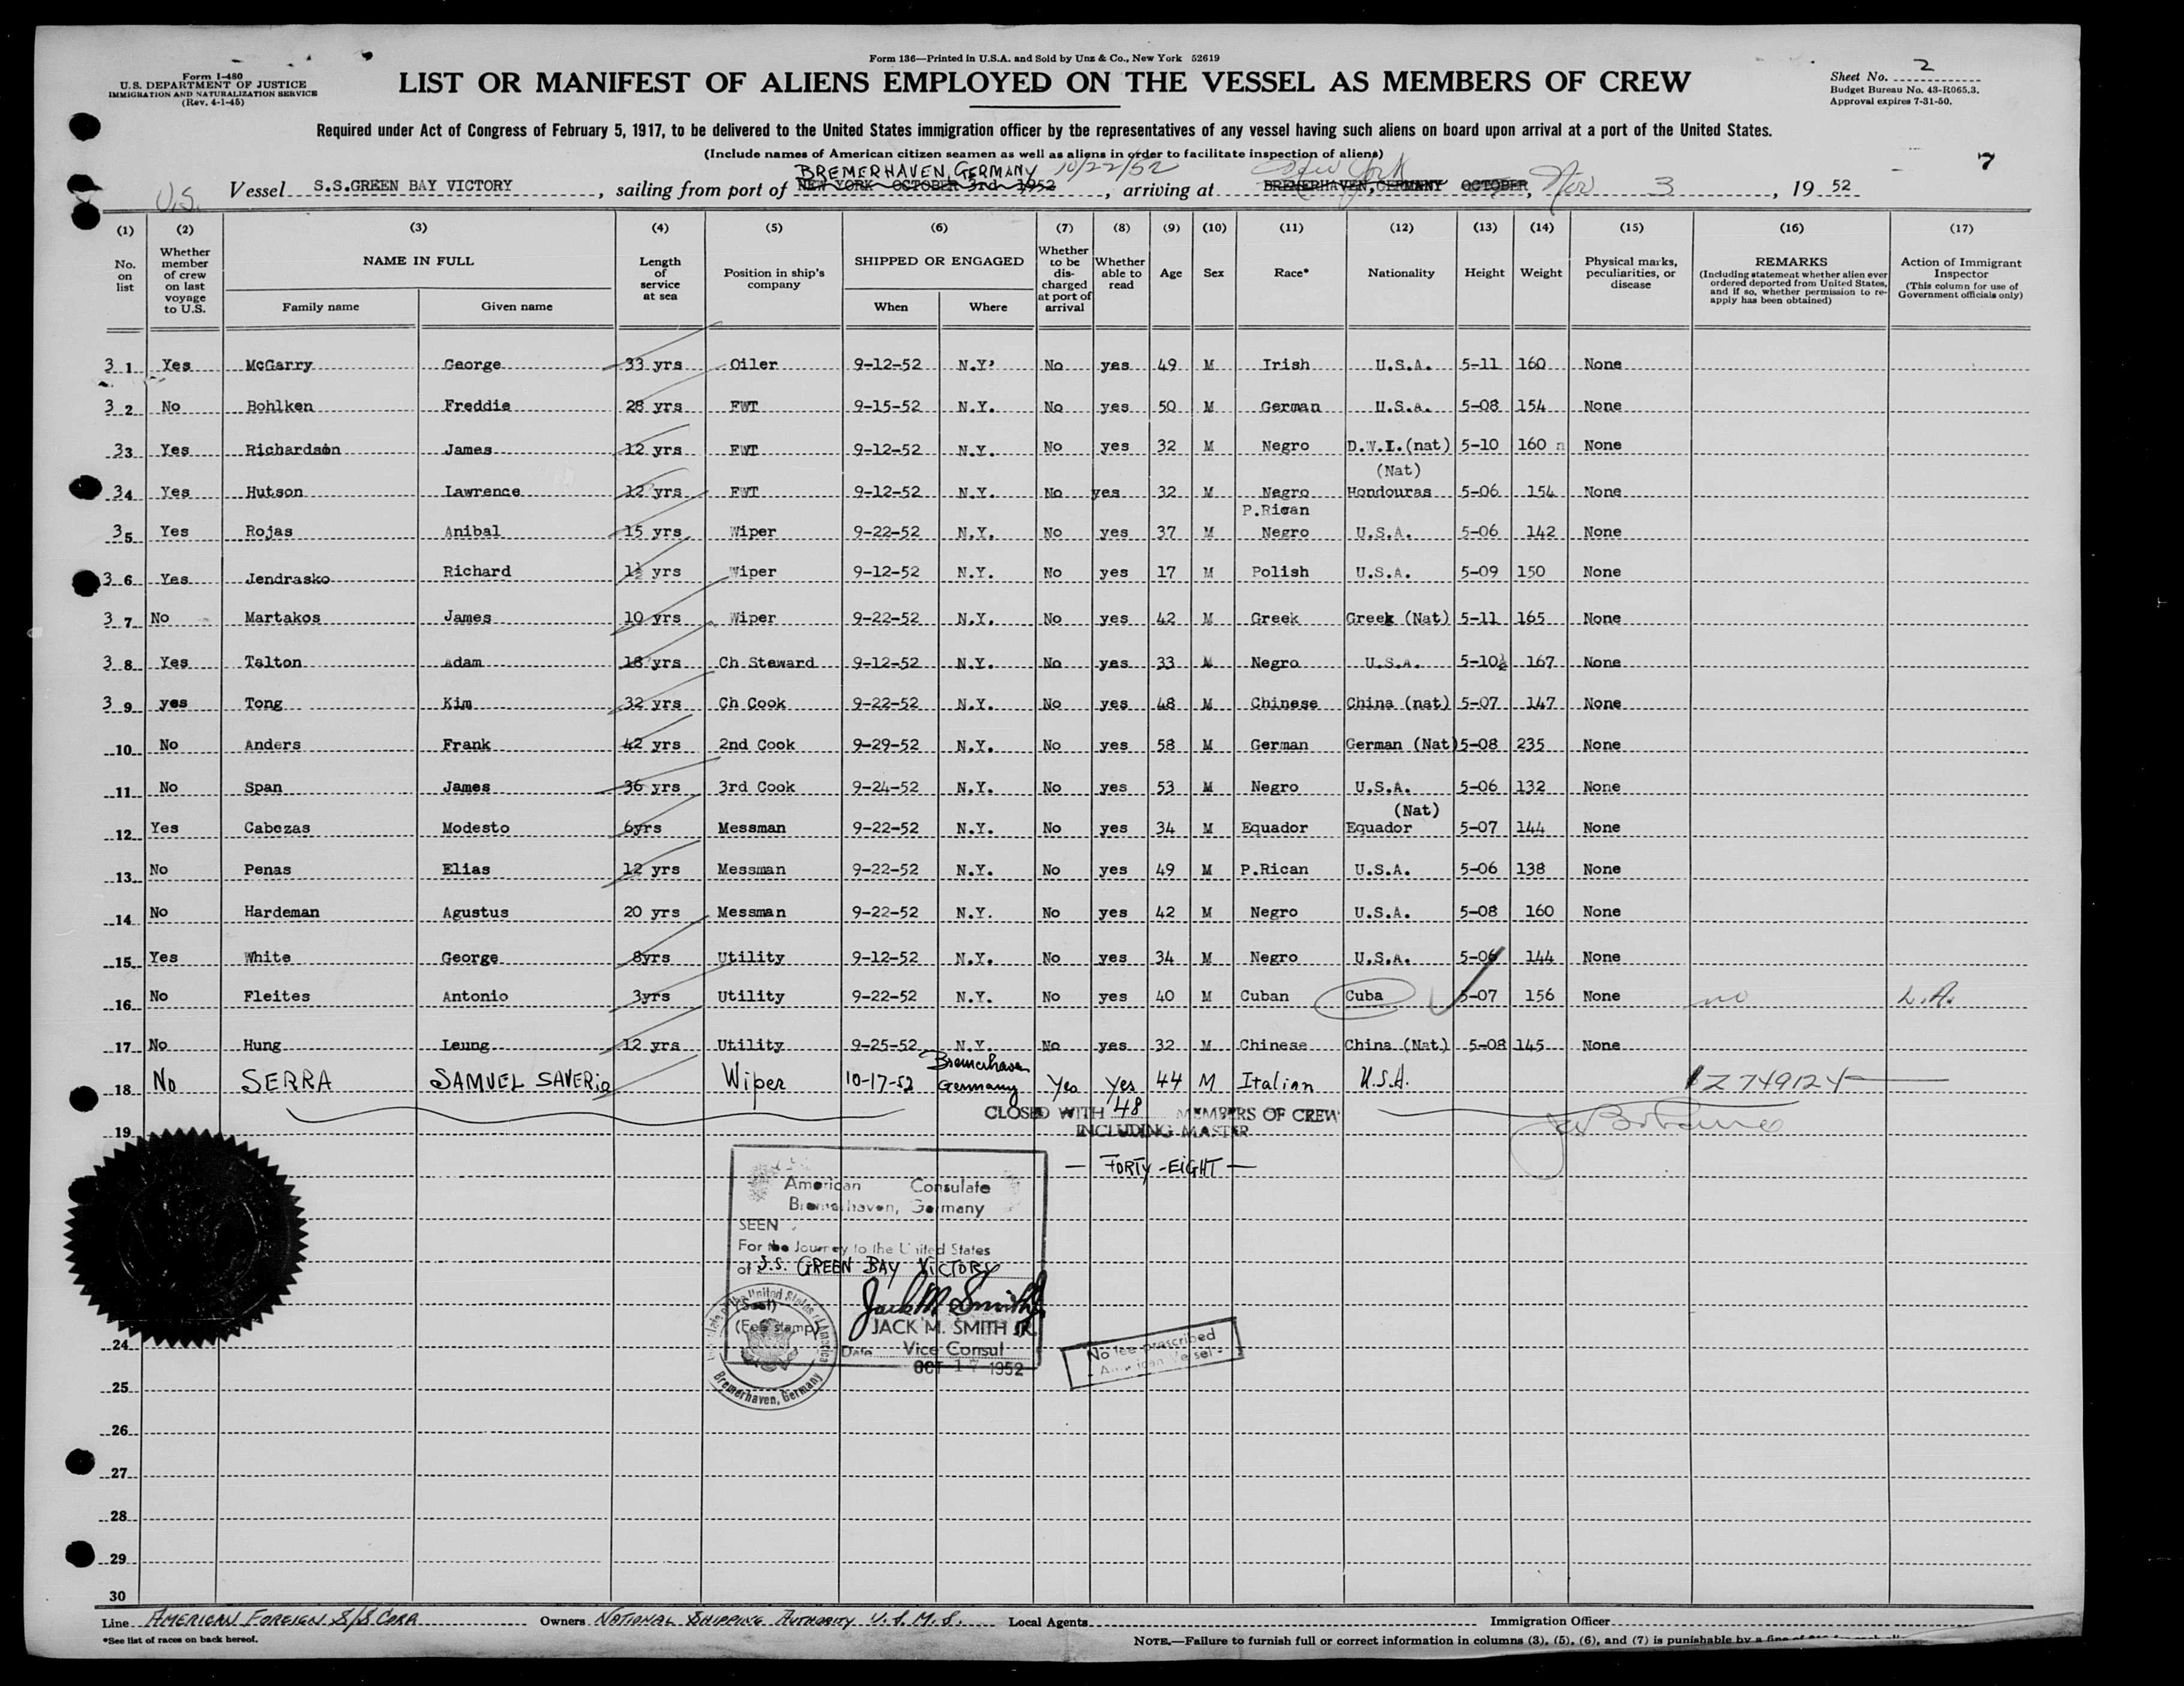 Form 136—Printed in U.S.A. and Sold by Unz & Co., New York 52619
Form I-480
U.S. DEPARTMENT OF JUSTICE
IMMIGRATION AND NATURALIZATION SERVICE
(Rev. 4-1-45)
LIST OR MANIFEST OF ALIENS EMPLOYED ON THE VESSEL AS MEMBERS OF CREW
Sheet No. 2
Budget Bureau No. 43-R065.3.
Approval expires 7-31-50.
Required under Act of Congress of February 5, 1917, to be delivered to the United States immigration officer by the representatives of any vessel having such aliens on board upon arrival at a port of the United States.
(Include names of American citizen seamen as well as aliens in order to facilitate inspection of aliens)
7
BREMERHAVEN, GERMANY 10/22/52 New York
U.S. Vessel S.S.GREEN BAY VICTORY, sailing from port of NEW YORK OCTOBER 3rd 1952, arriving at BREMERHAVEN, GERMANY OCTOBER, Nov 3, 19 52
(1) (2) (3) (4) (5) (6) (7) (8) (9) (10) (11) (12) (13) (14) (15) (16) (17)
No. on list
Whether member of crew on last voyage to U.S.
NAME IN FULL
Family name
Given name
Length of service at sea
Position in ship's company
SHIPPED OR ENGAGED
When
Where
Whether to be discharged at port of arrival
Whether able to read
Age
Sex
Race*
Nationality
Height
Weight
Physical marks, peculiarities, or disease
REMARKS
(Including statement whether alien ever ordered deported from United States, and if so, whether permission to re-apply has been obtained)
Action of Immigrant Inspector
(This column for use of Government officials only)
3 1 Yes McGarry George 33 yrs Oiler 9-12-52 N.Y. No yes 49 M Irish U.S.A. 5-11 160 None
3 2 No Bohlken Freddie 28 yrs FWT 9-15-52 N.Y. No yes 50 M German U.S.A. 5-08 154 None
33 Yes Richardson James 12 yrs FWT 9-12-52 N.Y. No yes 32 M Negro D.W.I.(nat) 5-10 160 None
(Nat)
34 Yes Hutson Lawrence 12 yrs FWT 9-12-52 N.Y. No yes 32 M Negro Hondouras 5-06 154 None
P.Rican
35 Yes Rojas Anibal 15 yrs Wiper 9-22-52 N.Y. No yes 37 M Negro U.S.A. 5-06 142 None
3 6 Yes Jendrasko Richard 1½ yrs Wiper 9-12-52 N.Y. No yes 17 M Polish U.S.A. 5-09 150 None
3 7 No Martakos James 10 yrs Wiper 9-22-52 N.Y. No yes 42 M Greek Greek (Nat) 5-11 165 None
3 8 Yes Talton Adam 18 yrs Ch Steward 9-12-52 N.Y. No yes 33 M Negro U.S.A. 5-10½ 167 None
3 9 yes Tong Kim 32 yrs Ch Cook 9-22-52 N.Y. No yes 48 M Chinese China (nat) 5-07 147 None
10 No Anders Frank 42 yrs 2nd Cook 9-29-52 N.Y. No yes 58 M German German (Nat) 5-08 235 None
11 No Span James 36 yrs 3rd Cook 9-24-52 N.Y. No yes 53 M Negro U.S.A. 5-06 132 None
(Nat)
12 Yes Cabezas Modesto 6yrs Messman 9-22-52 N.Y. No yes 34 M Equador Equador 5-07 144 None
13 No Penas Elias 12 yrs Messman 9-22-52 N.Y. No yes 49 M P.Rican U.S.A. 5-06 138 None
14 No Hardeman Agustus 20 yrs Messman 9-22-52 N.Y. No yes 42 M Negro U.S.A. 5-08 160 None
15 Yes White George 8yrs Utility 9-12-52 N.Y. No yes 34 M Negro U.S.A. 5-06 144 None
16 No Fleites Antonio 3yrs Utility 9-22-52 N.Y. No yes 40 M Cuban Cuba 5-07 156 None no L.A.
17 No Hung Leung 12 yrs Utility 9-25-52 N.Y. No yes 32 M Chinese China (Nat.) 5-08 145 None
Bremerhaven
18 No SERRA SAMUEL SAVERIO Wiper 10-17-52 Germany Yes Yes 44 M Italian U.S.A. Z 749124
CLOSED WITH 48 MEMBERS OF CREW
19 INCLUDING MASTER
— FORTY-EIGHT —
American Consulate
Bremerhaven, Germany
SEEN
For the Journey to the United States
of S.S. GREEN BAY VICTORY
(Seal)
Jack M Smith Jr
(Fee stamp) JACK M. SMITH JR.
24 Date Vice Consul
OCT 17 1952
Bremerhaven, Germany
No fee prescribed
American Vessel
25
26
27
28
29
30
Line AMERICAN FOREIGN S/S CORP Owners NATIONAL SHIPPING AUTHORITY U.S.M.S. Local Agents Immigration Officer
*See list of races on back hereof.
NOTE.—Failure to furnish full or correct information in columns (3), (5), (6), and (7) is punishable by a fine of